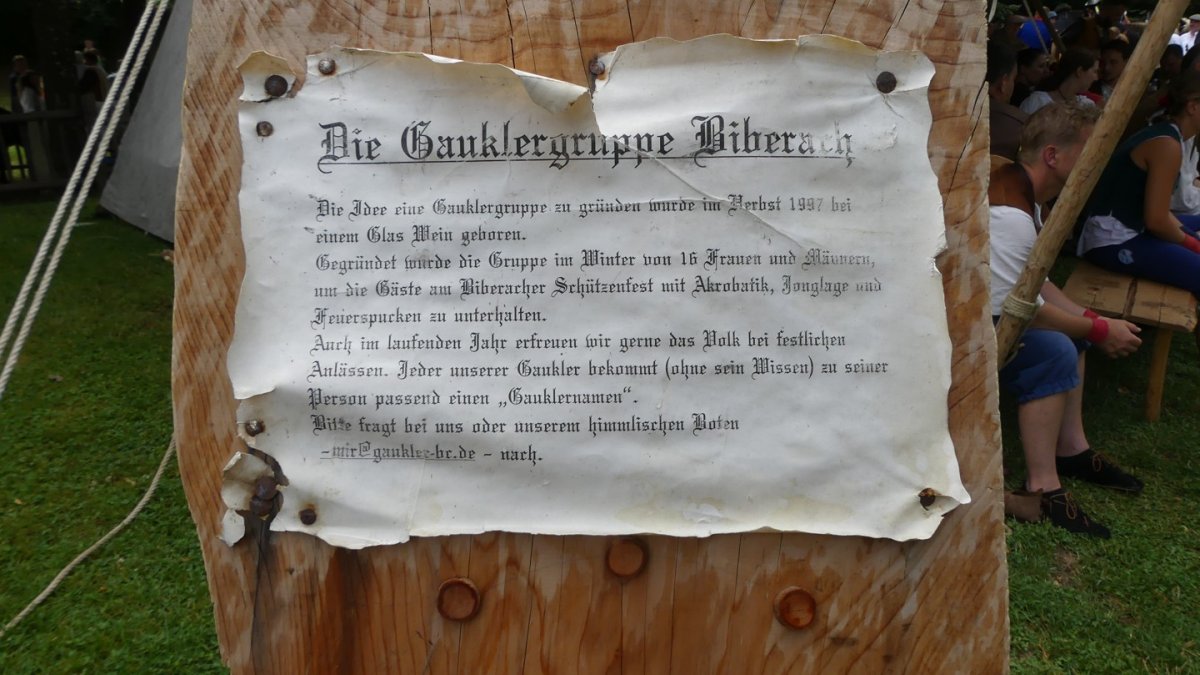 Die Gauklergruppe Biberach
Die Idee eine Gauklergruppe zu gründen wurde im Herbst 1997 bei
einem Glas Wein geboren.
Gegründet wurde die Gruppe im Winter von 16 Frauen und Männern,
um die Gäste am Biberacher Schützenfest mit Akrobatik, Jonglage und
Feuerspucken zu unterhalten.
Auch im laufenden Jahr erfreuen wir gerne das Volk bei festlichen
Anlässen. Jeder unserer Gaukler bekommt (ohne sein Wissen) zu seiner
Person passend einen „Gauklernamen“.
Bitte fragt bei uns oder unserem himmlischen Boten
-mir@gaukler-bc.de - nach.